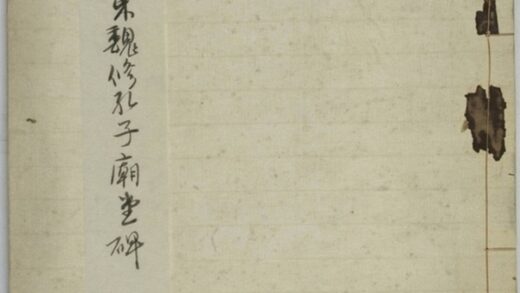 東魏修孔子廟堂碑